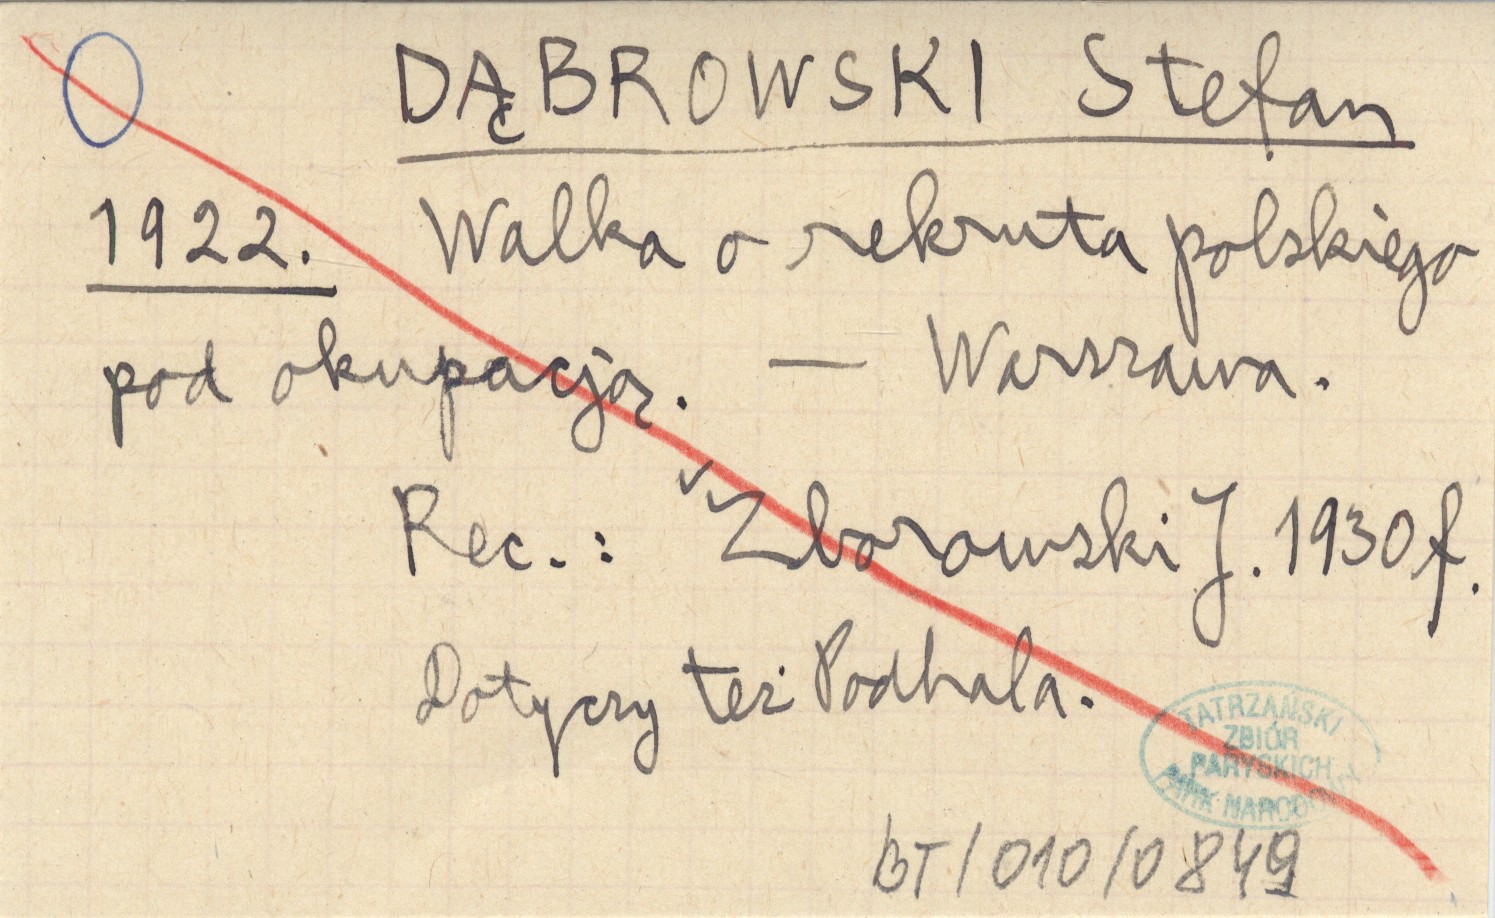 DĄBROWSKI Stefan
1922. Walka o rekruta polskiego
pod okupacją. — Warszawa.
Rec.: Zborowski J. 1930 f.
Dotyczy też Podhala.
TATRZAŃSKI
ZBIÓR
PARYSKICH
PARK NARODOWY
BT/010/0849